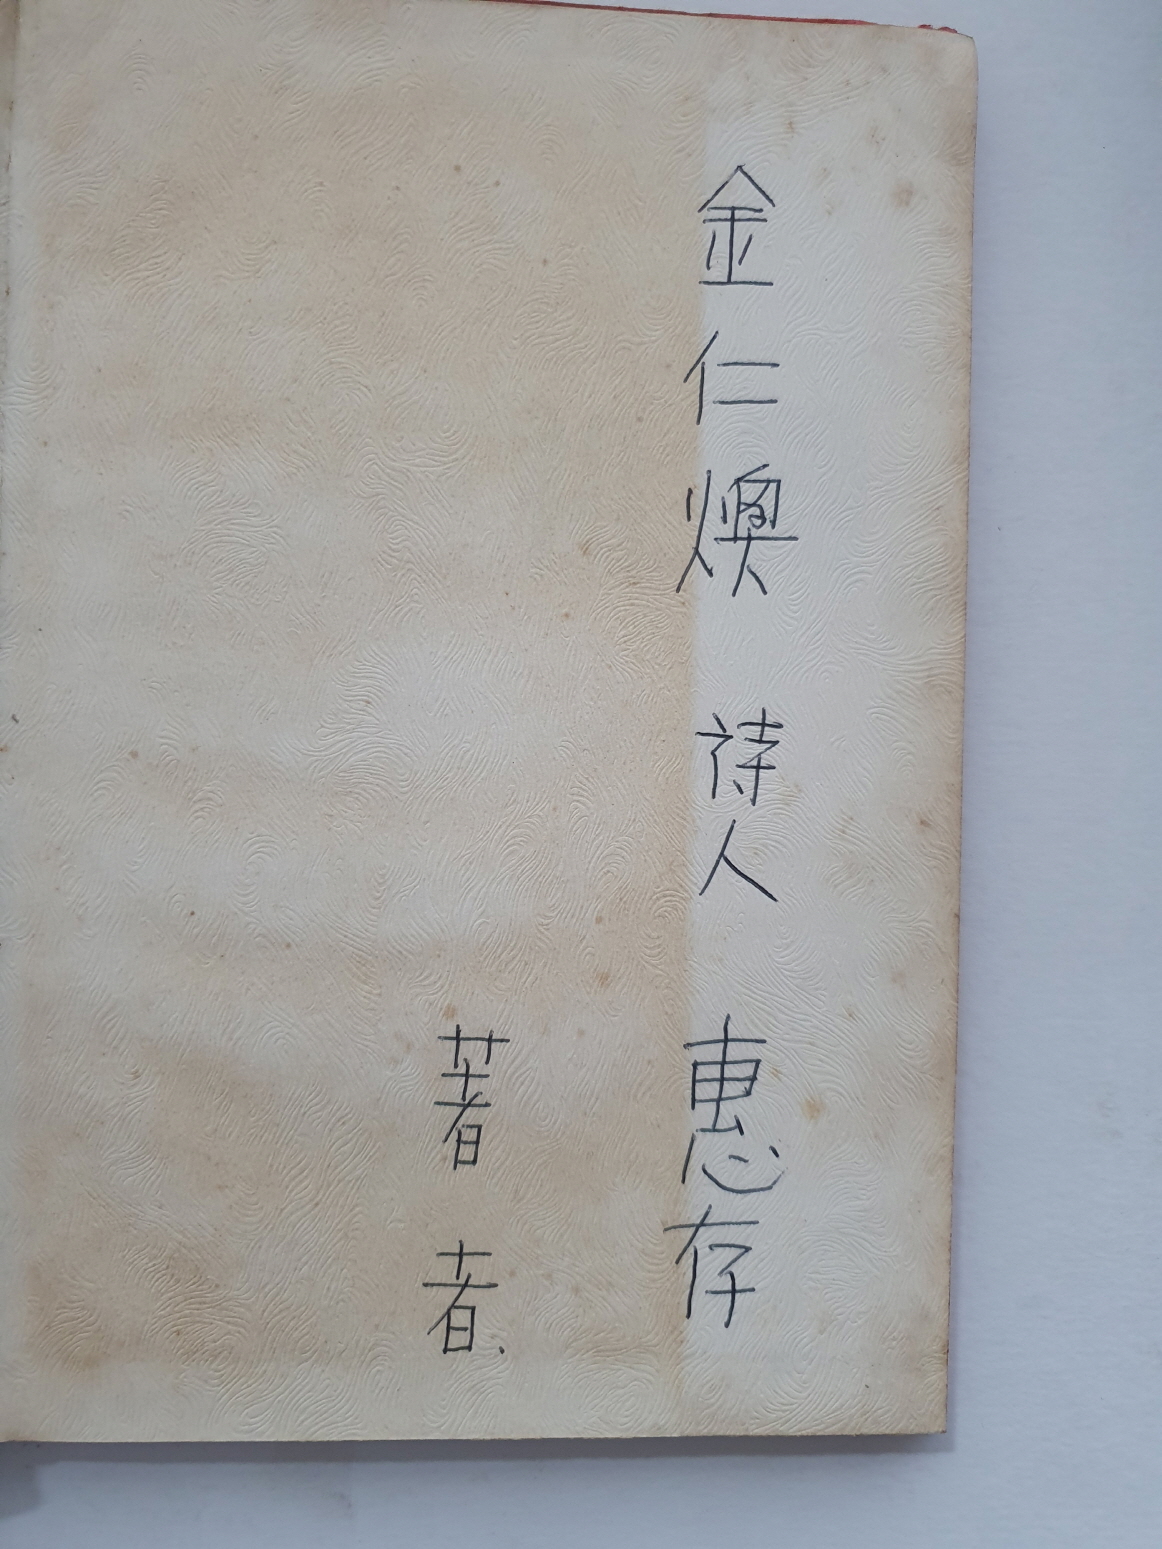 金仁煥 詩人 惠存
著者.